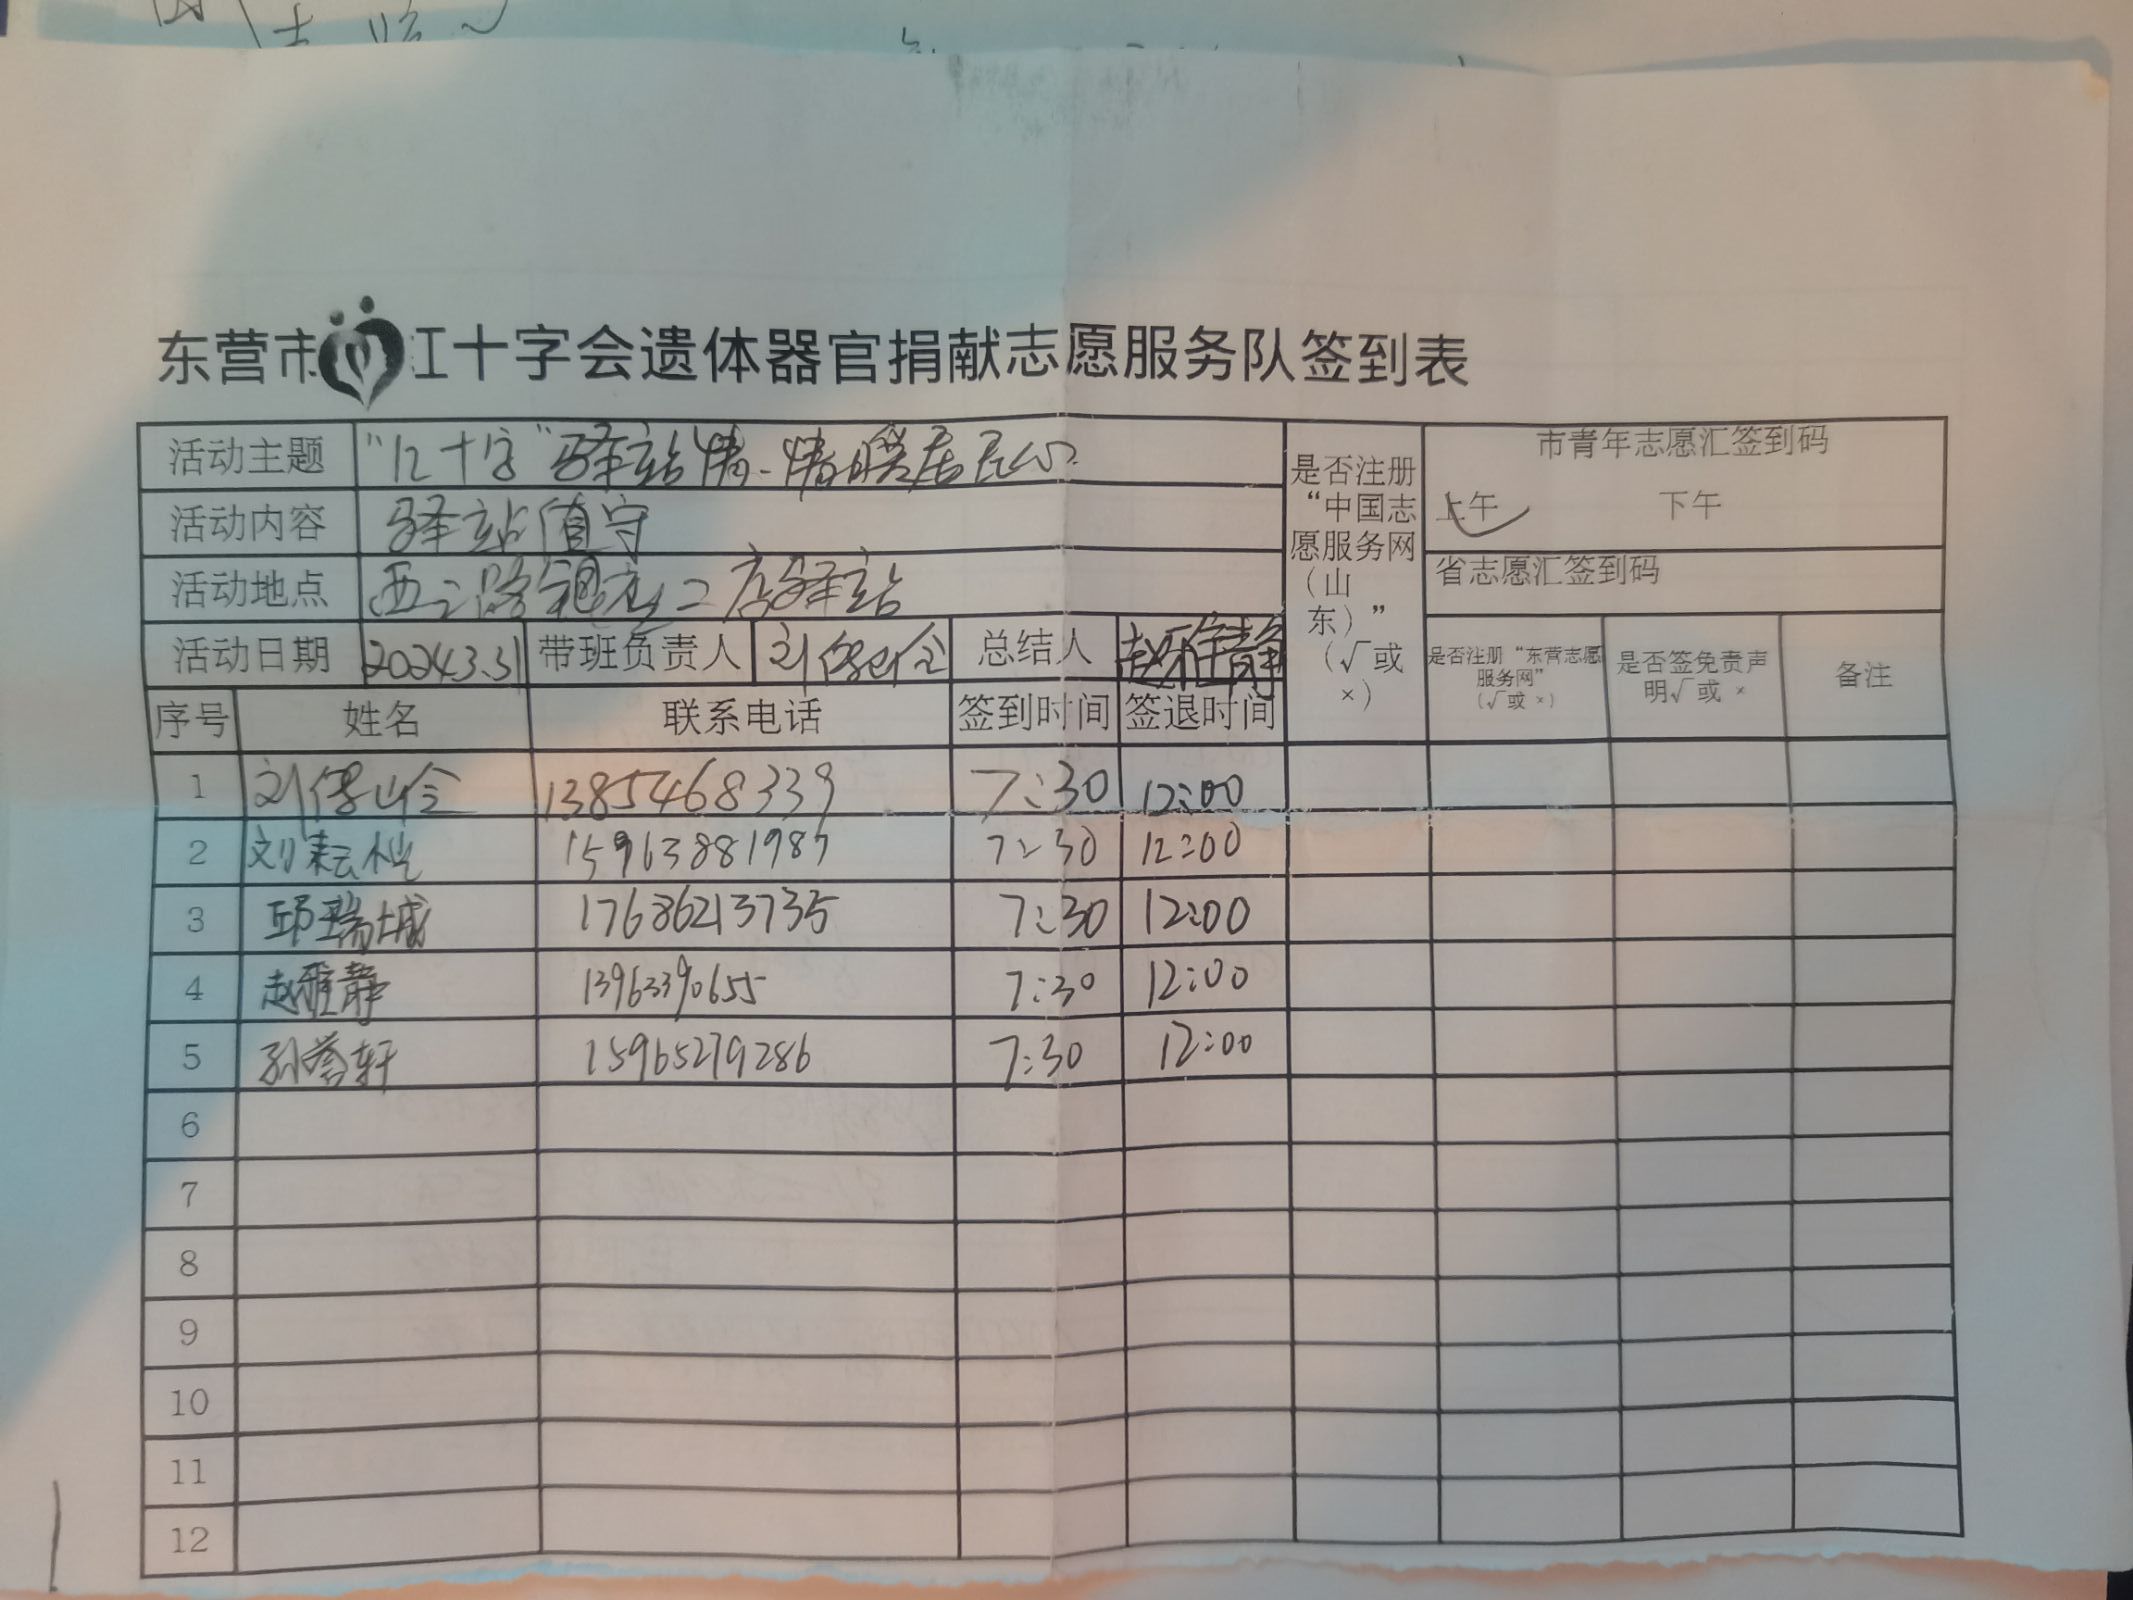 东营市红十字会遗体器官捐献志愿服务队签到表
活动主题 “红十字”驿站情.情暖居民心
活动内容 驿站值守
活动地点 西二路 二店驿站
活动日期 2024.3.31 带班负责人 刘 总结人 赵雅静
是否注册“中国志愿服务网（山东）”（√或×）
市青年志愿汇签到码
上午 下午
省志愿汇签到码
是否注册“东营志愿服务网”（√或×） 是否签免责声明√或× 备注
序号 姓名 联系电话 签到时间 签退时间
1 刘 13854468339 7:30 12:00
2 刘耘恺 15963881987 7:30 12:00
3 邱瑞城 17686213735 7:30 12:00
4 赵雅静 13963390655 7:30 12:00
5 孙誉轩 15965279286 7:30 12:00
6
7
8
9
10
11
12